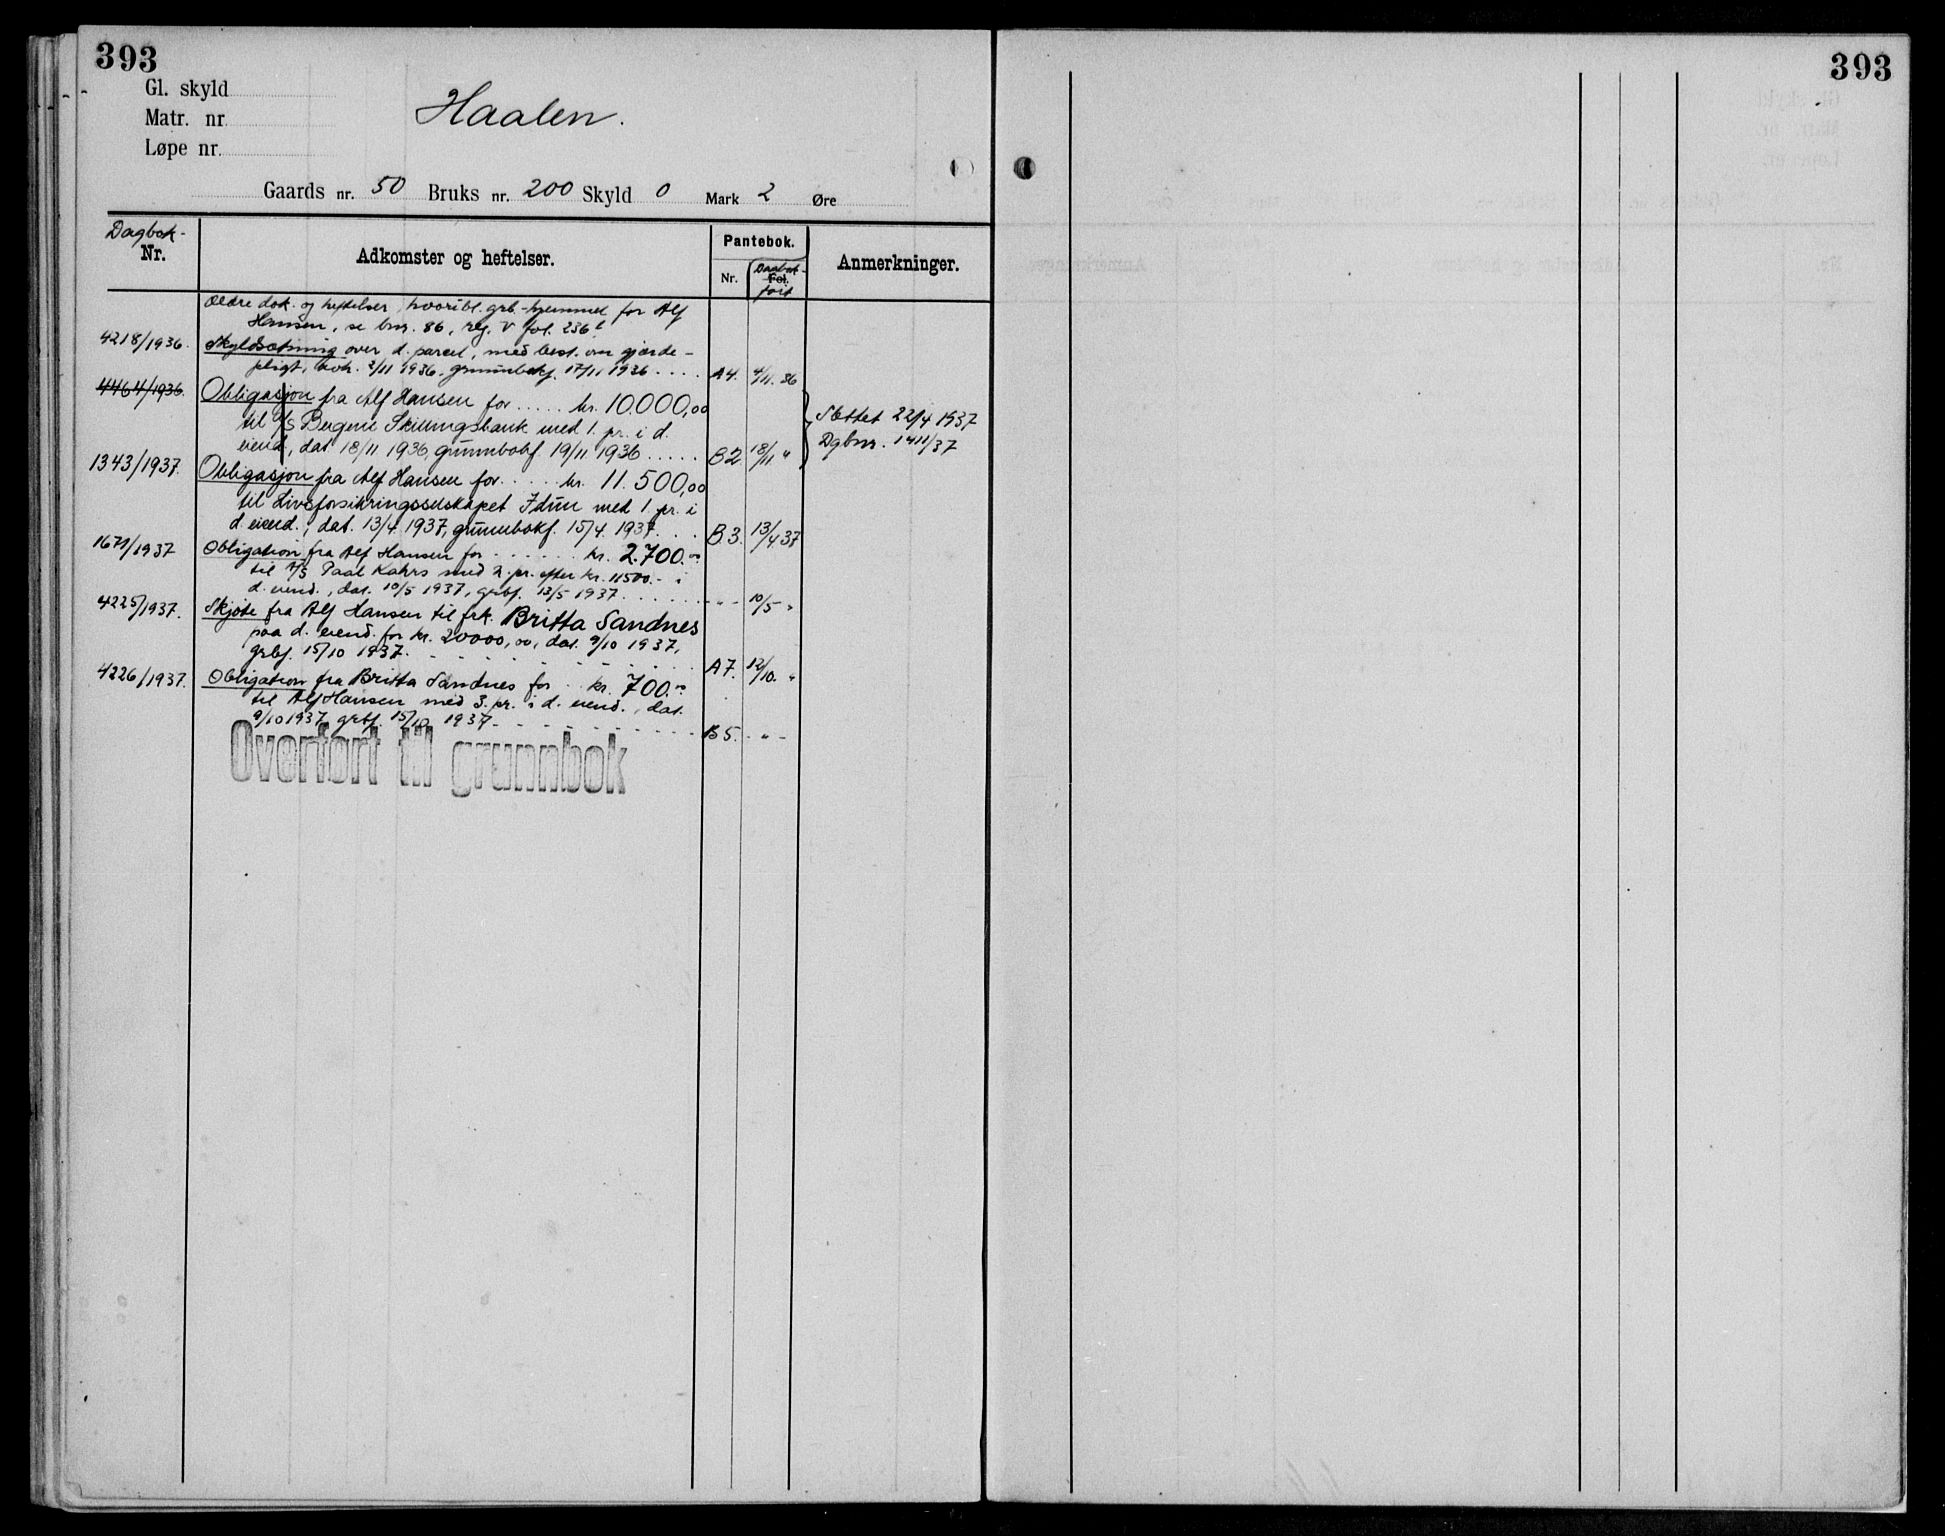 393
393
Gl. skyld
Matr. nr
Løpe nr.
Haalen.
Gaards nr. 50 Bruks nr. 200 Skyld 0 Mark 2 Øre
Dagbok-
Nr.
Adkomster og heftelser.
Pantebok.
Nr.
Dagbok-
Fol.
ført
Anmerkninger.
Ældre dok. og heftelser, hvoribl. grb.-hjemmel for Alf
Hansen, se bnr. 86, reg. V fol. 236 b
4218/1936. Skyldsætning over d. parcel, med best. om gjærde-
pligt, avh. 2/11 1936, grunnbokf. 17/11 1936 . . . . A4. 4/11. 36
4464/1936. Obligasjon fra Alf Hansen for ..... kr. 10.000,00
til A/S Bergens Skillingsbank med 1. pr. i d.
eiend., dat 18/11 1936, grunnbokf 19/11 1936 ..... B2. 18/11 "
Slettet 22/4 1937
Dgbnr. 1411/37
1343/1937. Obligasjon fra Alf Hansen for ..... kr. 11.500,00
til Livsforsikringsselskapet Idun med 1. pr. i
d. eiend., dat. 13/4 1937, grunnbokf. 15/4. 1937. . . B.3. 13/4 37
1671/1937 Obligation fra Alf Hansen for ....... kr. 2.700.-
til A/S Paal Kahrs med 2. pr. efter kr. 11500.- i
d. eiend., dat. 10/5 1937, grbf. 13/5 1937. ....... - " - 10/5 "
4225/1937. Skjøte fra Alf Hansen til frk. Britta Sandnes
paa d. eiend. for kr. 20000,00, dat. 9/10 1937,
grbf. 15/10 1937. - - - - - - - - A7. 12/10. "
4226/1937. Obligation fra Britta Sandnes for .. kr. 700.-
til Alf Hansen med 3. pr. i d. eiend., dat.
9/10 1937, grbf. 15/10 1937 - - - - - - - - B5. - " -
Overført til grunnbok